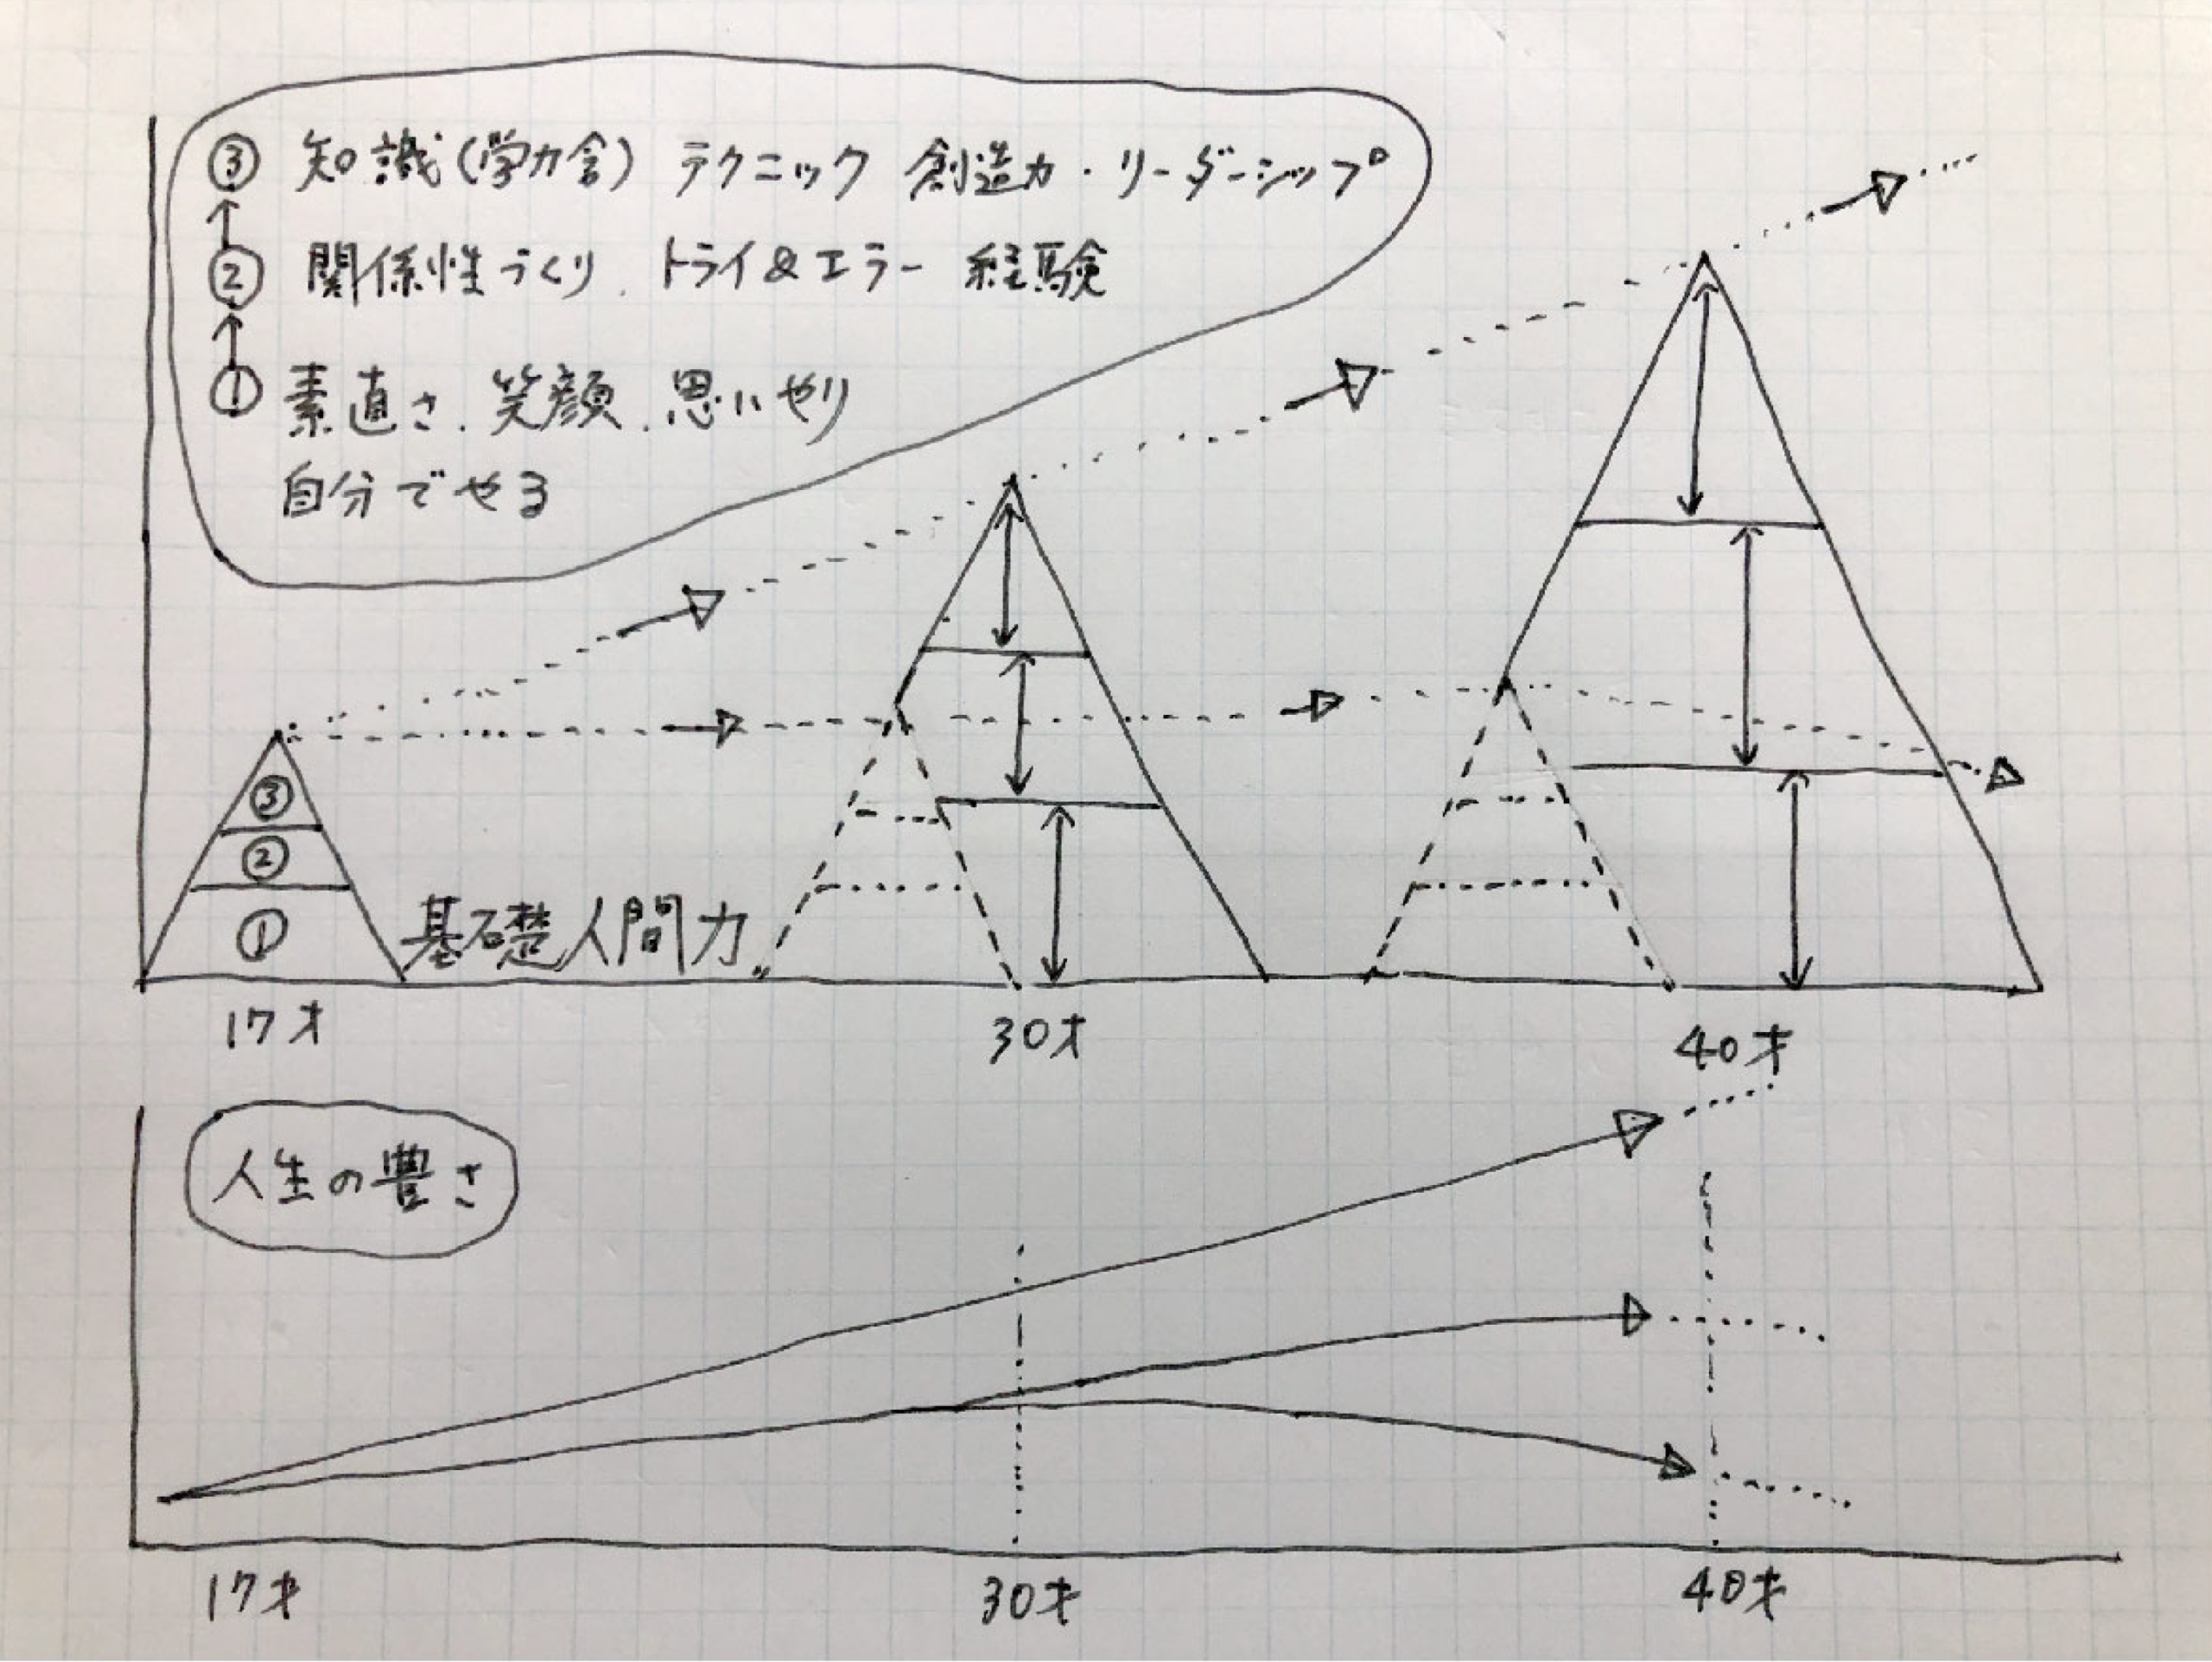 ③ 知識(学力含) テクニック 創造力・リーダーシップ
② 関係性づくり、トライ&エラー 経験
① 素直さ、笑顔、思いやり
自分でやる
③
②
①
基礎人間力
17才 30才 40才
人生の豊さ
17才 30才 40才